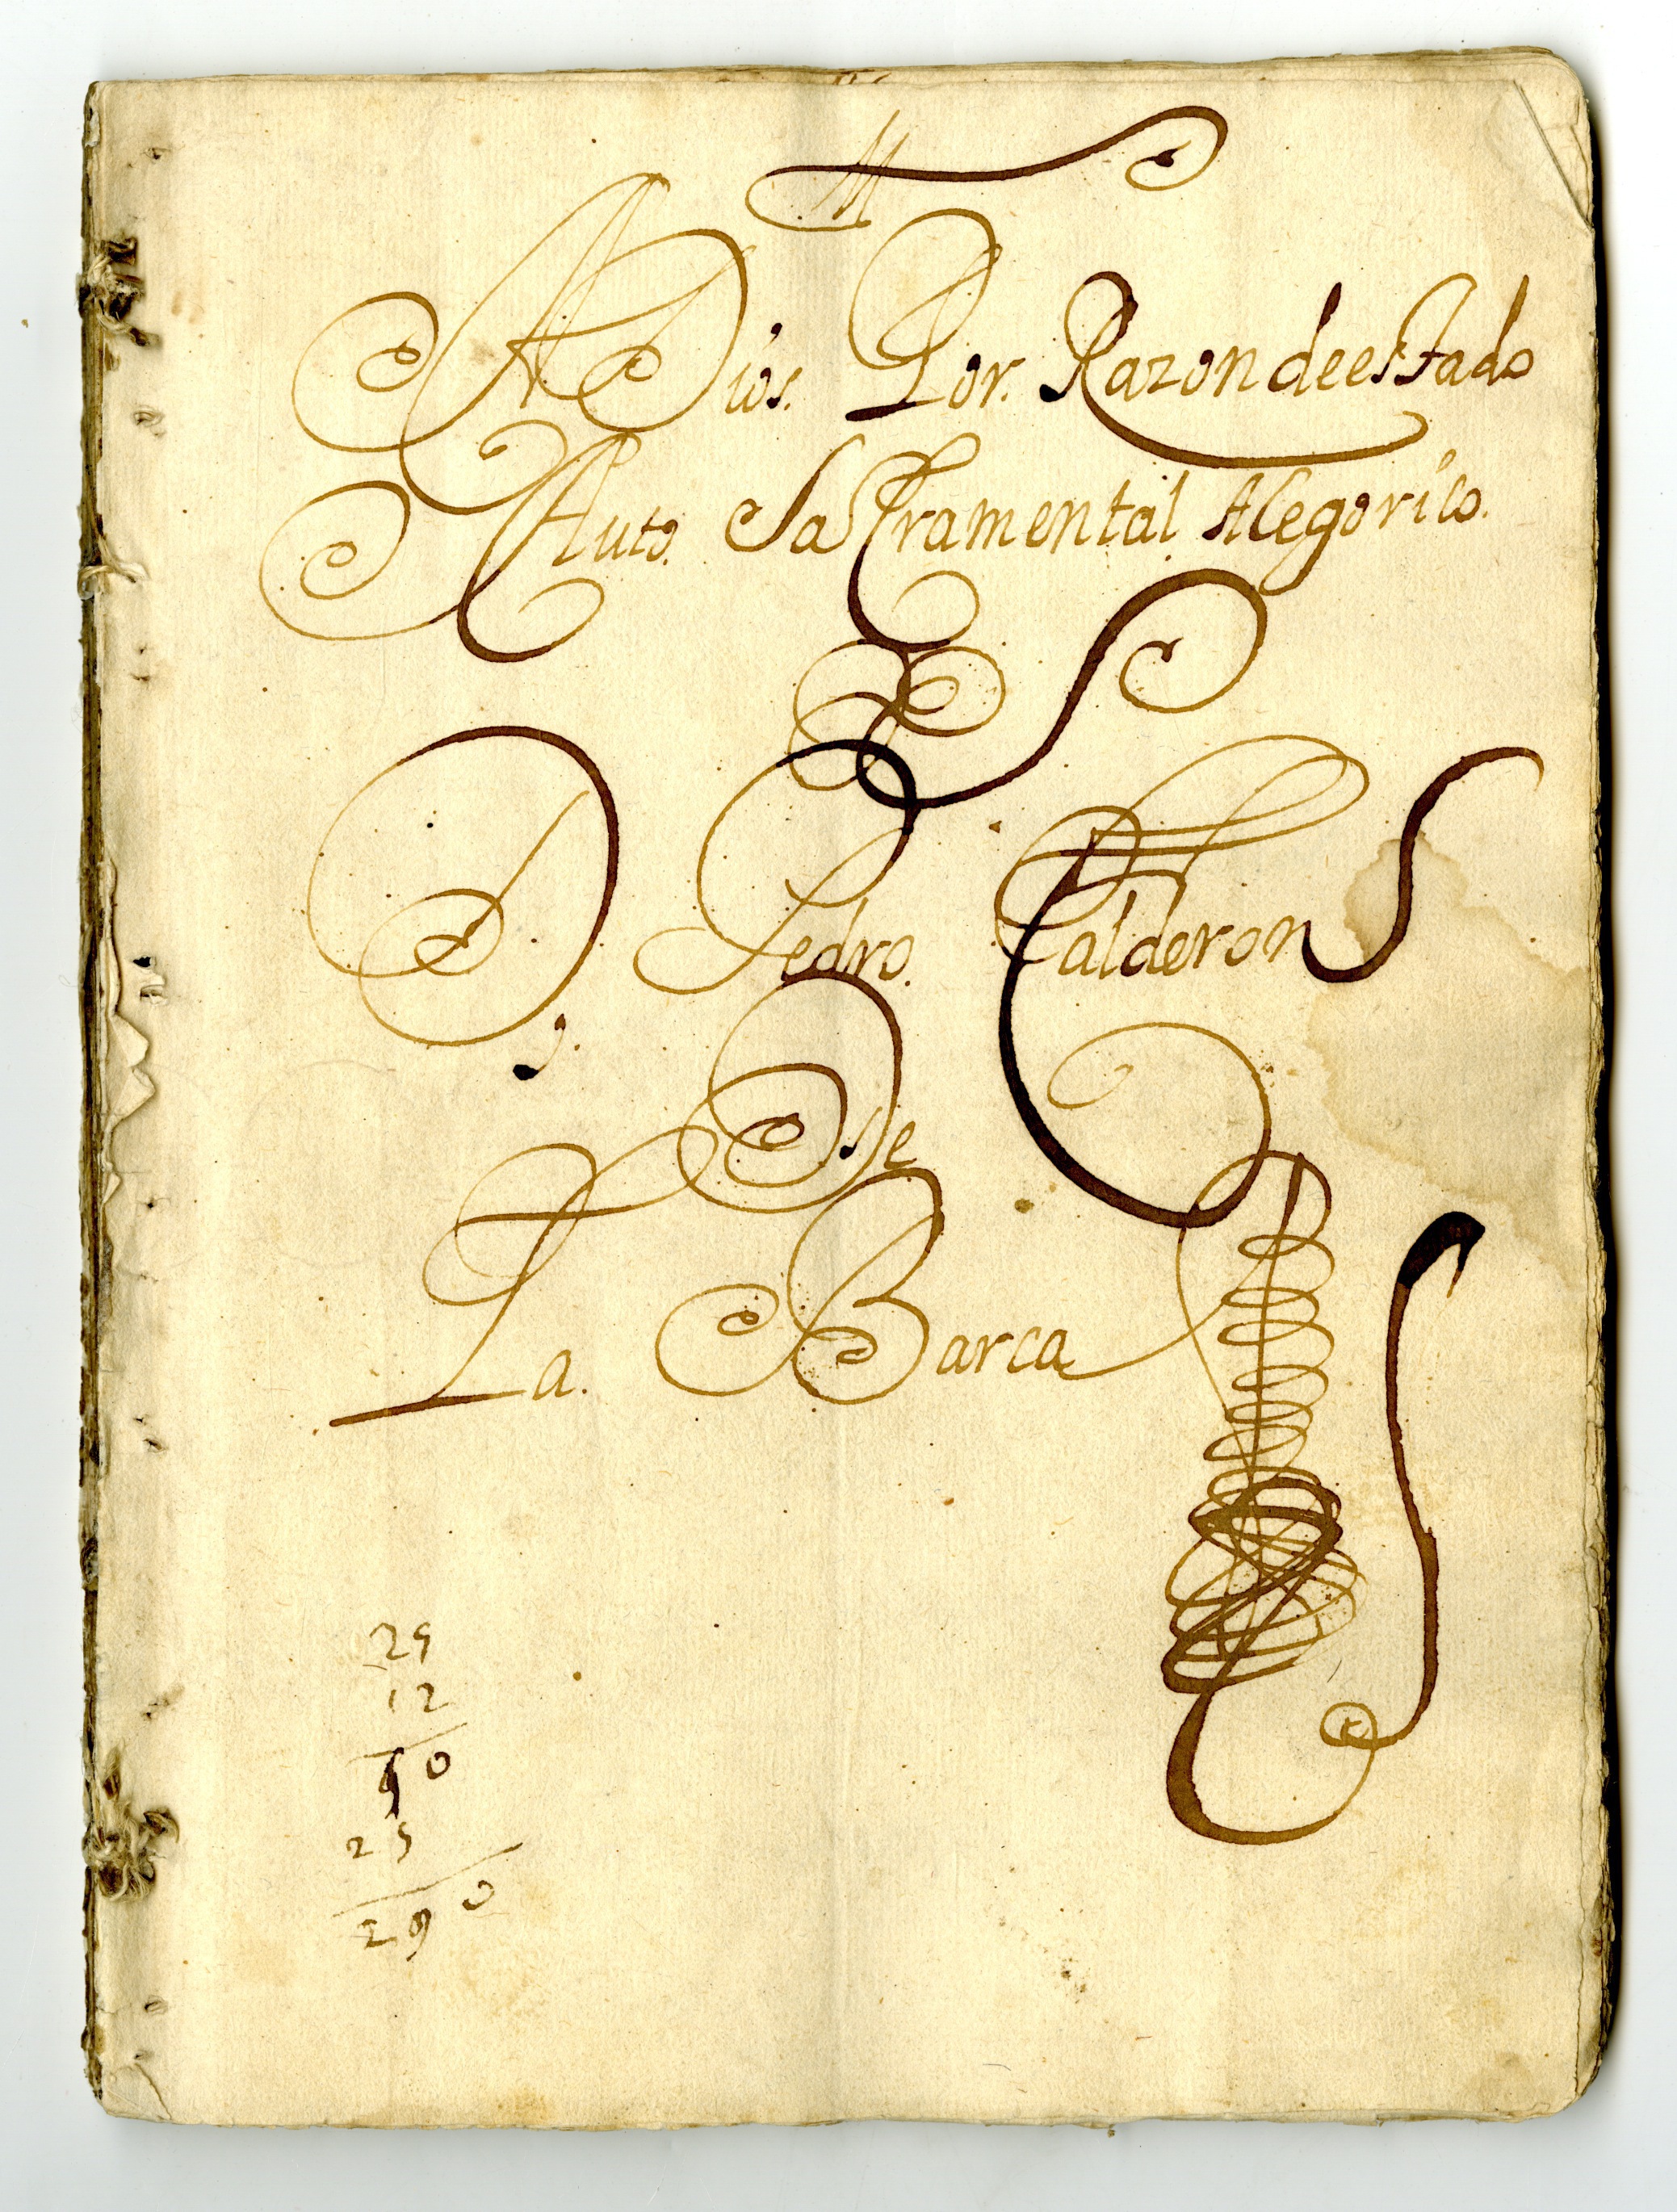 M
A Dios. Por. Razon de estado
Auto. Sacramental Alegorico.
D. Pedro. Calderon
De
La. Barca
29
12
0
25
290